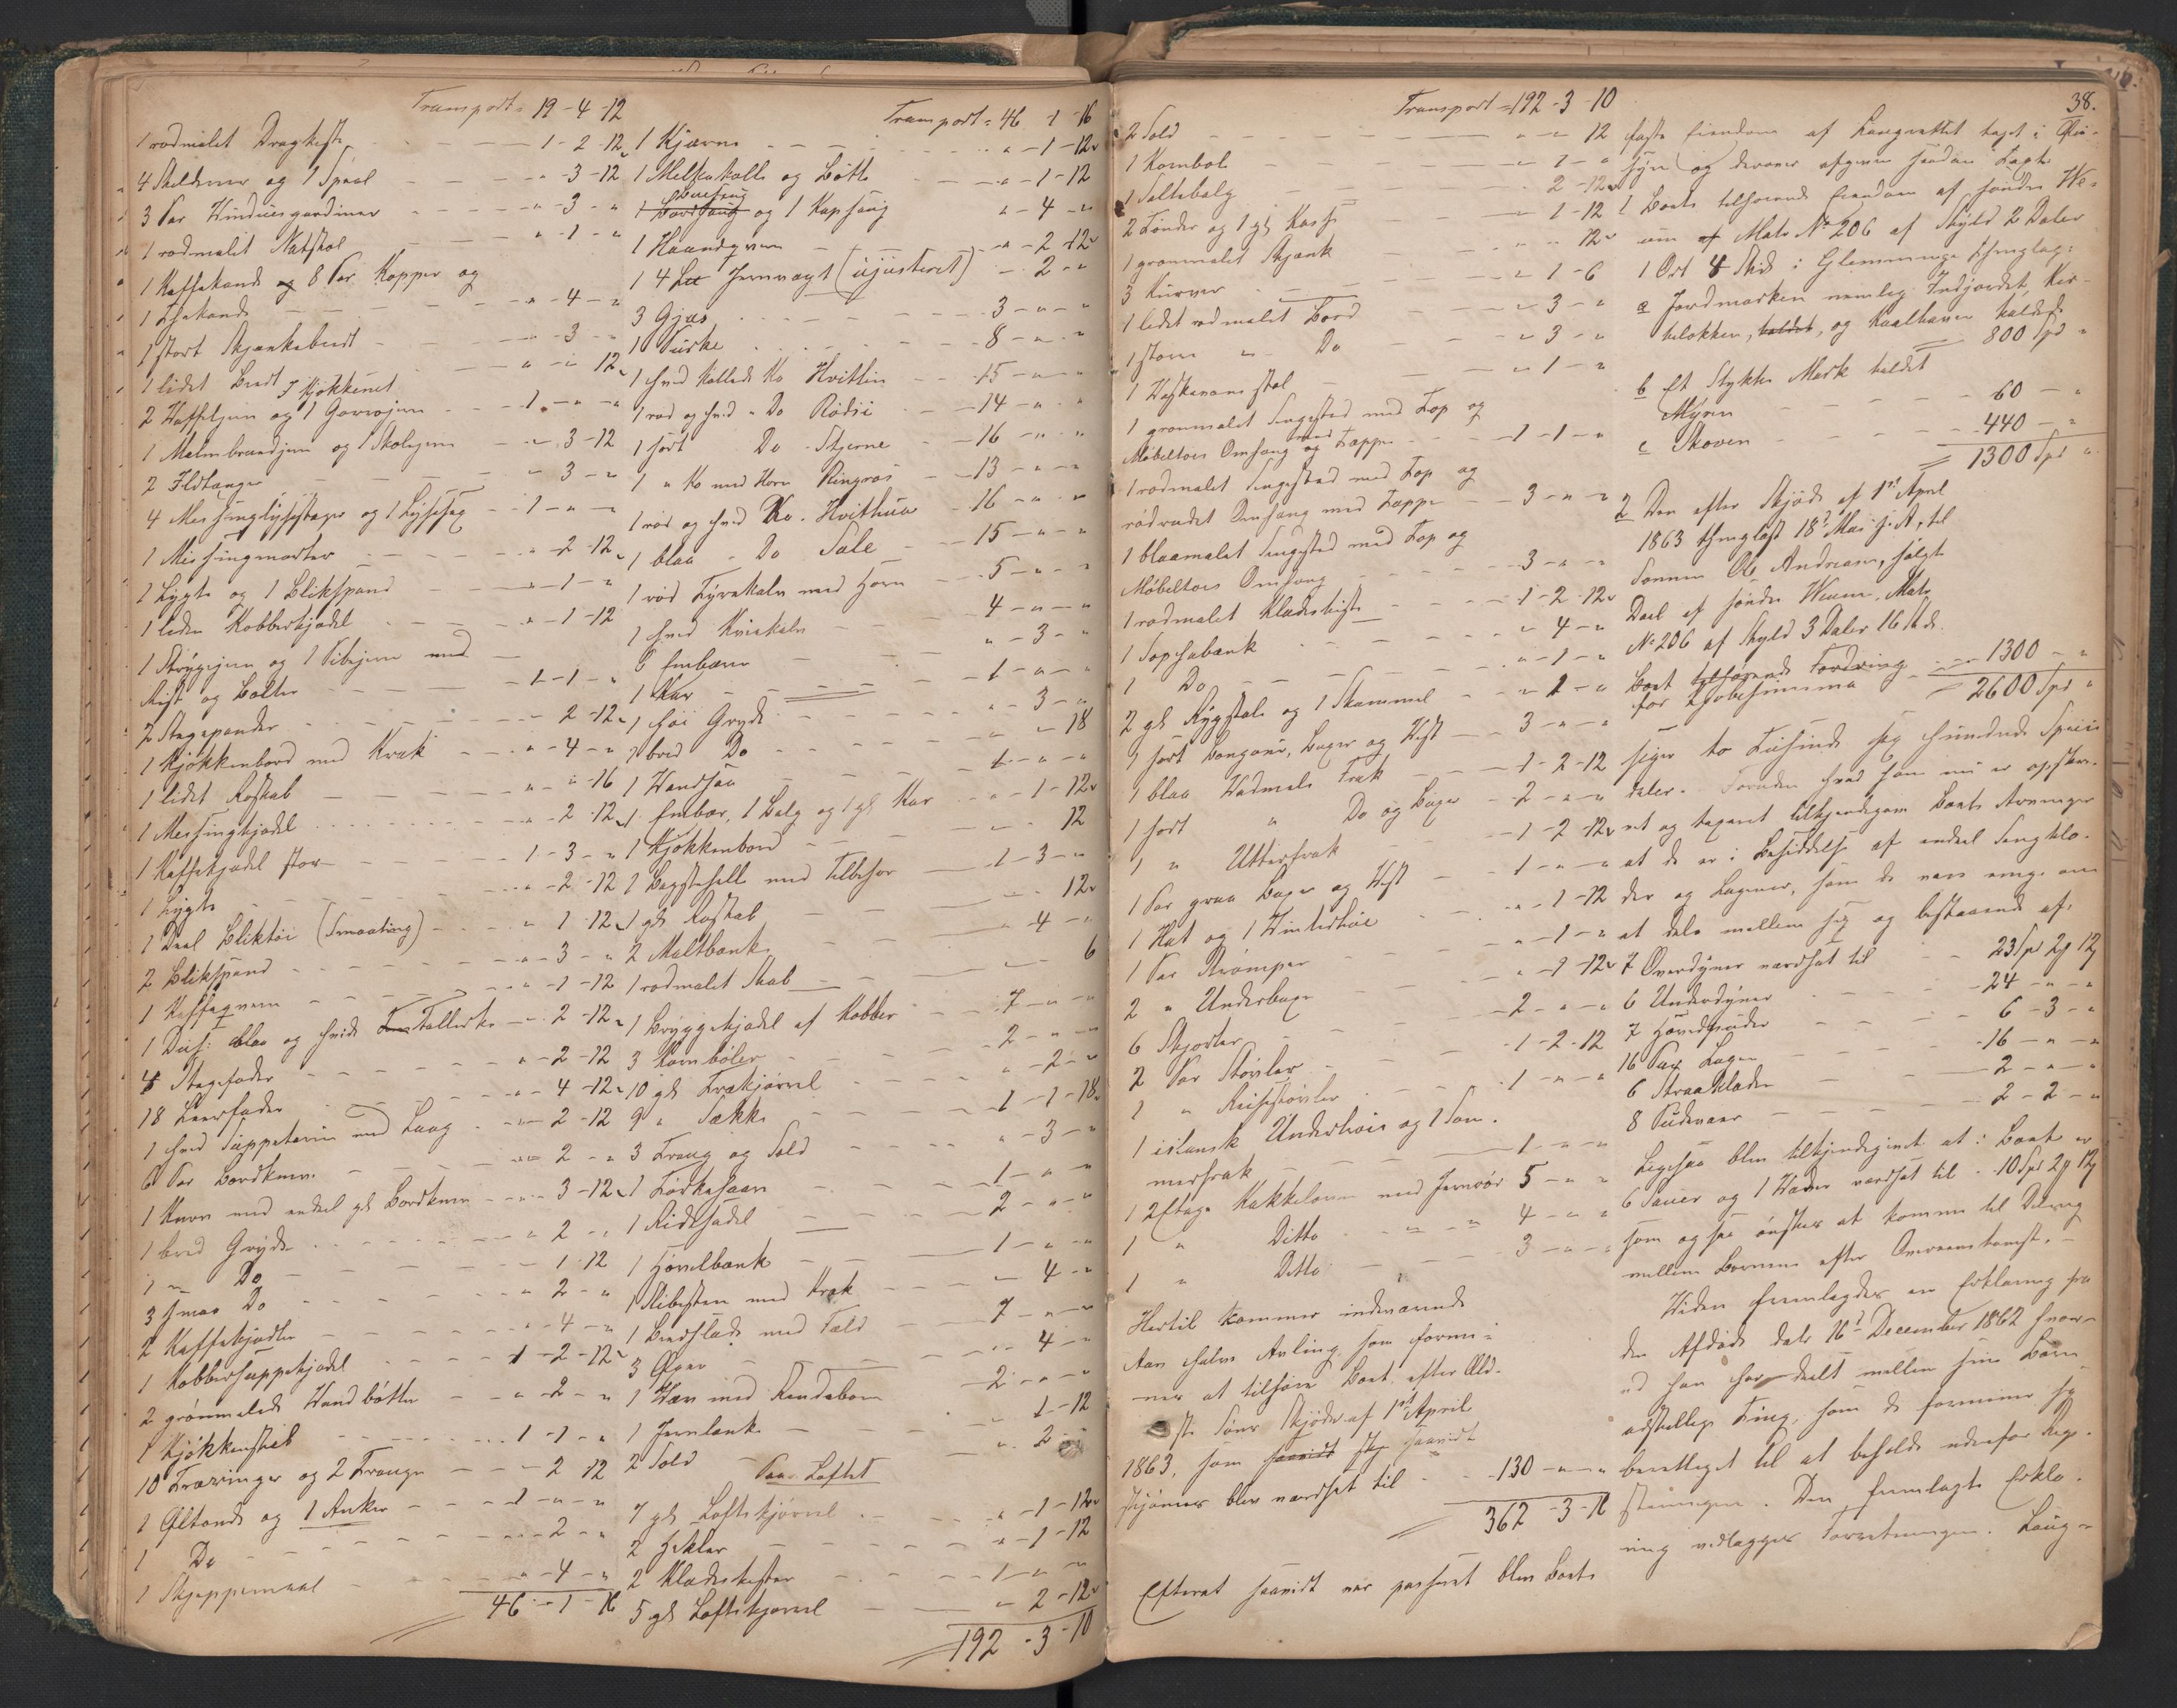 Transport = 19 - 4 - 12
1 rødmalet Dragkiste - 1 - 2 - 12
4 Skilderier og 1 Speil " - 3 - 12
3 Par Vinduesgardiner " - 3 - "
1 rødmalet Natstol " - 1 - "
1 Kaffekande og 8 Par Kopper og
1 Thekande " - 4 - "
1 stort Skjænkebrædt " - 3 - "
1 lidet Brædt " - " - 12
I Kjøkkenet
2 Vaffeljern og 1 Goroejern 1 - " - "
1 Malmbrandjern og 1 " - 3 - 12
2 Ildtænger " - 3 - "
4 Messinglysestager og 1 Lysesax 1 - " - "
1 Messingmorter " - 2 - 12
1 Lygte og 1 Blikspand " - 1 - "
1 liden Kobberkjedel " - 1 - 12
1 Strygejern og 1 Pibejern med
Rist og Bolter 1 - 1 - "
2 Stegepander " - 2 - 12
1 Kjøkkenbord med Krak " - 4 - "
1 lidet Roskab " - " - 16
1 Messingkjedel " - 2 - 12
1 Kaffekjedel stor 1 - 3 - "
1 Lygte " - 2 - 12
1 Deel Bliktøi (Smaating) " - 1 - 12
2 Blikspand " - 3 - "
1 Kaffeqvern " - 1 - 12
1 Dus: blaa og hvide Tallerker " - 2 - 12
4 Stegefade " - 2 - 12
18 Leerfade " - 4 - 12
1 hvid Suppeterin med Laag " - 2 - 12
6 Par Bordkniv " - 2 - "
1 Kurv med endeel gl Bordkniv " - 3 - 12
1 bred Gryde " - 2 - "
1 " Do " - 1 - 12
3 smaa Do " - 2 - "
2 Kaffekjedler " - 4 - "
1 Kobbersuppekjedel 1 - 2 - 12
2 grønmalede Vandbøtter " - 2 - "
1 Kjøkkenskab 1 - 1 - "
10 Træringer og 2 Trauge " - 2 - 12
1 Øltønde og 1 Anker 1 - " - "
1 Do " - 2 - "
1 Skjeppemaal " - 4 - "
46 - 1 - 16
Transport = 46 - 1 - 16
1 Kjærne " - 1 - 12
1 Melkekolle og Bøtte " - 1 - 12
Buesaug
1 Bordsaug og 1 Kapsaug " - 4 - "
1 Haandqvern " - 2 - 12
1 4 Jernvægt (ujusteret) " - 2 - "
3 Gjæs 3 - " - "
1 Purke 8 - " - "
1 hvid kollede Ko Hvitlin 15 - " - "
1 rød og hvid " Do Rødsi 14 - " - "
1 sort Do Stjerne 16 - " - "
1 " Ko med Horn Ringros 13 - " - "
1 rød og hvid Ko Hvithua 16 - " - "
1 blaa - Do Sale 15 - " - "
1 rød Tyrekalv med Horn 5 - " - "
1 hvid Kviekalv 4 - " - "
6 Embærer " - 3 - "
1 Kar 1 - " - "
1 høi Gryde " - 3 - "
1 bred Do " - " - 18
1 Vandsaa 1 - " - "
1 Embær, 1 Balg og 1 gl Kar " - 1 - 12
1 Kjøkkenbord " - " - 12
1 Bagstehelle med Tilbehør 1 - 3 - "
1 gl Roskab " - " - 12
2 Maltbænke " - 4 - "
1 rødmalet Skab " - " - 6
1 Bryggekjedel af Kobber 7 - " - "
3 Kornbøler 2 - " - "
10 gl Trækjørrel " - 2 - "
9 " Sække 1 - 1 - 18
3 Traug og Sold " - 3 - "
1 Tørkesaan 1 - " - "
1 Ridesadel 2 - " - "
1 Høvelbænk 1 - " - "
1 Slibesten med Krak " - 4 - "
1 Bredslæde med Fæld 7 - " - "
3 Øxer " - 4 - "
1 Væv med Rendebom 2 - " - "
1 Jernlænke " - 1 - 12
2 Sold " - 2 - "
Paa Loftet
7 gl Loftskjørrel " - 1 - 12
2 Hekler " - 1 - 12
2 Klædeskister 1 - " - "
5 gl Loftskjørrel " - 2 - 12
192 - 3 - 10
38.
Transport = 192 - 3 - 10
2 Sold " - " - 12
1 Kornbole " - 1 - "
1 Saltebalg " - 2 - 12
2 Tønder og 1 gl Kasse " - 1 - 12
1 grønmalet Skjænk " - " - 12
3 Kurver " - 1 - 6
1 lidet rødmalet Bord " - 3 - "
1 større " Do " - 3 - "
1 stol " - 1 - "
1 grønmalet Sengested med Top og
Møbeltøis Omhæng med Kappe 1 - 1 - "
1 rødmalet Sengested med Top og
rødrudet Omhæng med Kappe 3 - " - "
1 blaamalet Sengested med Top og
Møbeltøis Omhæng 3 - " - "
1 rødmalet Klædeskiste 1 - 2 - 12
1 Sophabænk " - 4 - "
1 Do " - 1 - "
2 gl Rygstole og 1 Skammel " - 1 - "
1 sort Bonjour, Buxer og Vest 3 - " - "
1 blaa Vadmels Frak 1 - 2 - 12
1 sort " Do og Buxer 2 - " - "
1 " Ytterfrak 1 - 2 - 12
1 Par graa Buxer og Vest 1 - " - "
1 Hat og 1 Vinterhue " - 1 - 12
1 Par Strømper " - 1 - "
2 " Underbuxer " - 1 - 12
6 Skjorter 2 - " - "
2 Par Støvler 1 - 2 - 12
1 " Reisestøvler 1 - " - "
1 islansk Undertrøie og 1 Som-
merfrak 1 - " - "
1 2 Etage Kakkelovn med Jernrør 5 - " - "
1 " Ditto " - " 4 - " - "
1 " Ditto 3 - " - "
Hertil kommer indeværende
Aars halve Avling som formi-
ner at tilhøre Boet, efter Æld-
ste Søns Skjøde af 1ste April
1863, som saavidt skjønnes
skjønnes blev værdsat til 130 - " - "
362 - 3 - 16
Efterat saavidt var passeret blev Boets
faste Eiendom af Laugrettet taget i Øie-
syn og derover afgiven saadan Taxt:
1 Boets tilhørende Eiendom af søndre Ve-
um af Matr No 206 af Skyld 2 Daler
1 Ort 4 Skil i Glemminge Thinglag:
a Jordmarken nemlig Indjordet, Kir-
belokken, kaldet, og Kaalhaven kaldet
800 Spd "
b Et Stykke Mark kaldet
Myren 60 - "
c Skoven 440 - "
1300 Spd "
2 Den efter Skjøde af 1ste April
1863 thinglæst 18de Mai s. A., til
Sønnen Ole Andreasen, solgte
Deel af søndre Veum, Matr
No 206 af Skyld 3 Daler 16 Sk.
Boet tilhørende Fordring
for Kjøbesumma 1300 - "
2600 Spd "
siger to Tusinde sex hundrede Specie
daler. Foruden hvad som nu er opskre-
vet og taxeret tilkjendegav Boets Arvinger
at de er i Besiddelse af endeel Sengeklæ-
der og Lagener, som de vare enige om
at dele mellem sig og bestaaende af:
7 Overdyner værdsat til 23 Spd 2 12
6 Underdyner 24 - " - "
7 Hovedpuder 6 - 3 - "
16 Par Lagen 16 - " - "
6 Straaklæder 2 - " - "
8 Pudevaar 2 - 2 - "
Ligesaa blev tilkjendegivet at i Boet er
6 Sauer og 1 Væder værdsat til 10 Spd 2 12
som ogsaa ønskes at komme til Deling
mellem Børnene efter Overeenskomst.
Viden fremlagdes en Erklæring fra
den Afdøde datr 16de December 1862 hvor-
ved han har deelt mellem sine Børn
adskillige Ting, som de formener sig
berettiget til at beholde udenfor Regi-
streringen. Den fremlagte Erklæ-
ring vedlægges Forretningen. Laug-